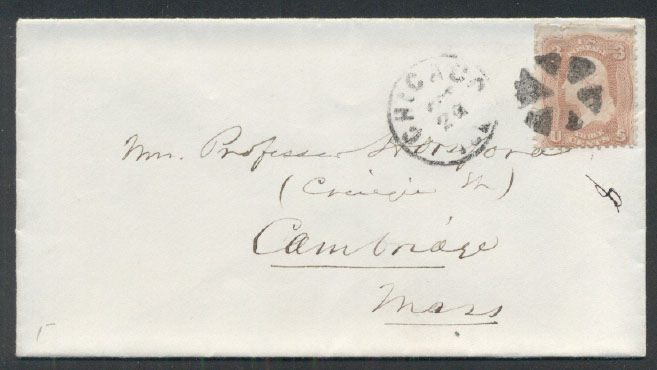 CHICAGO
29
3 3
U S
Mrs. Professor Horsford
(Craigie St)
Cambridge
Mass